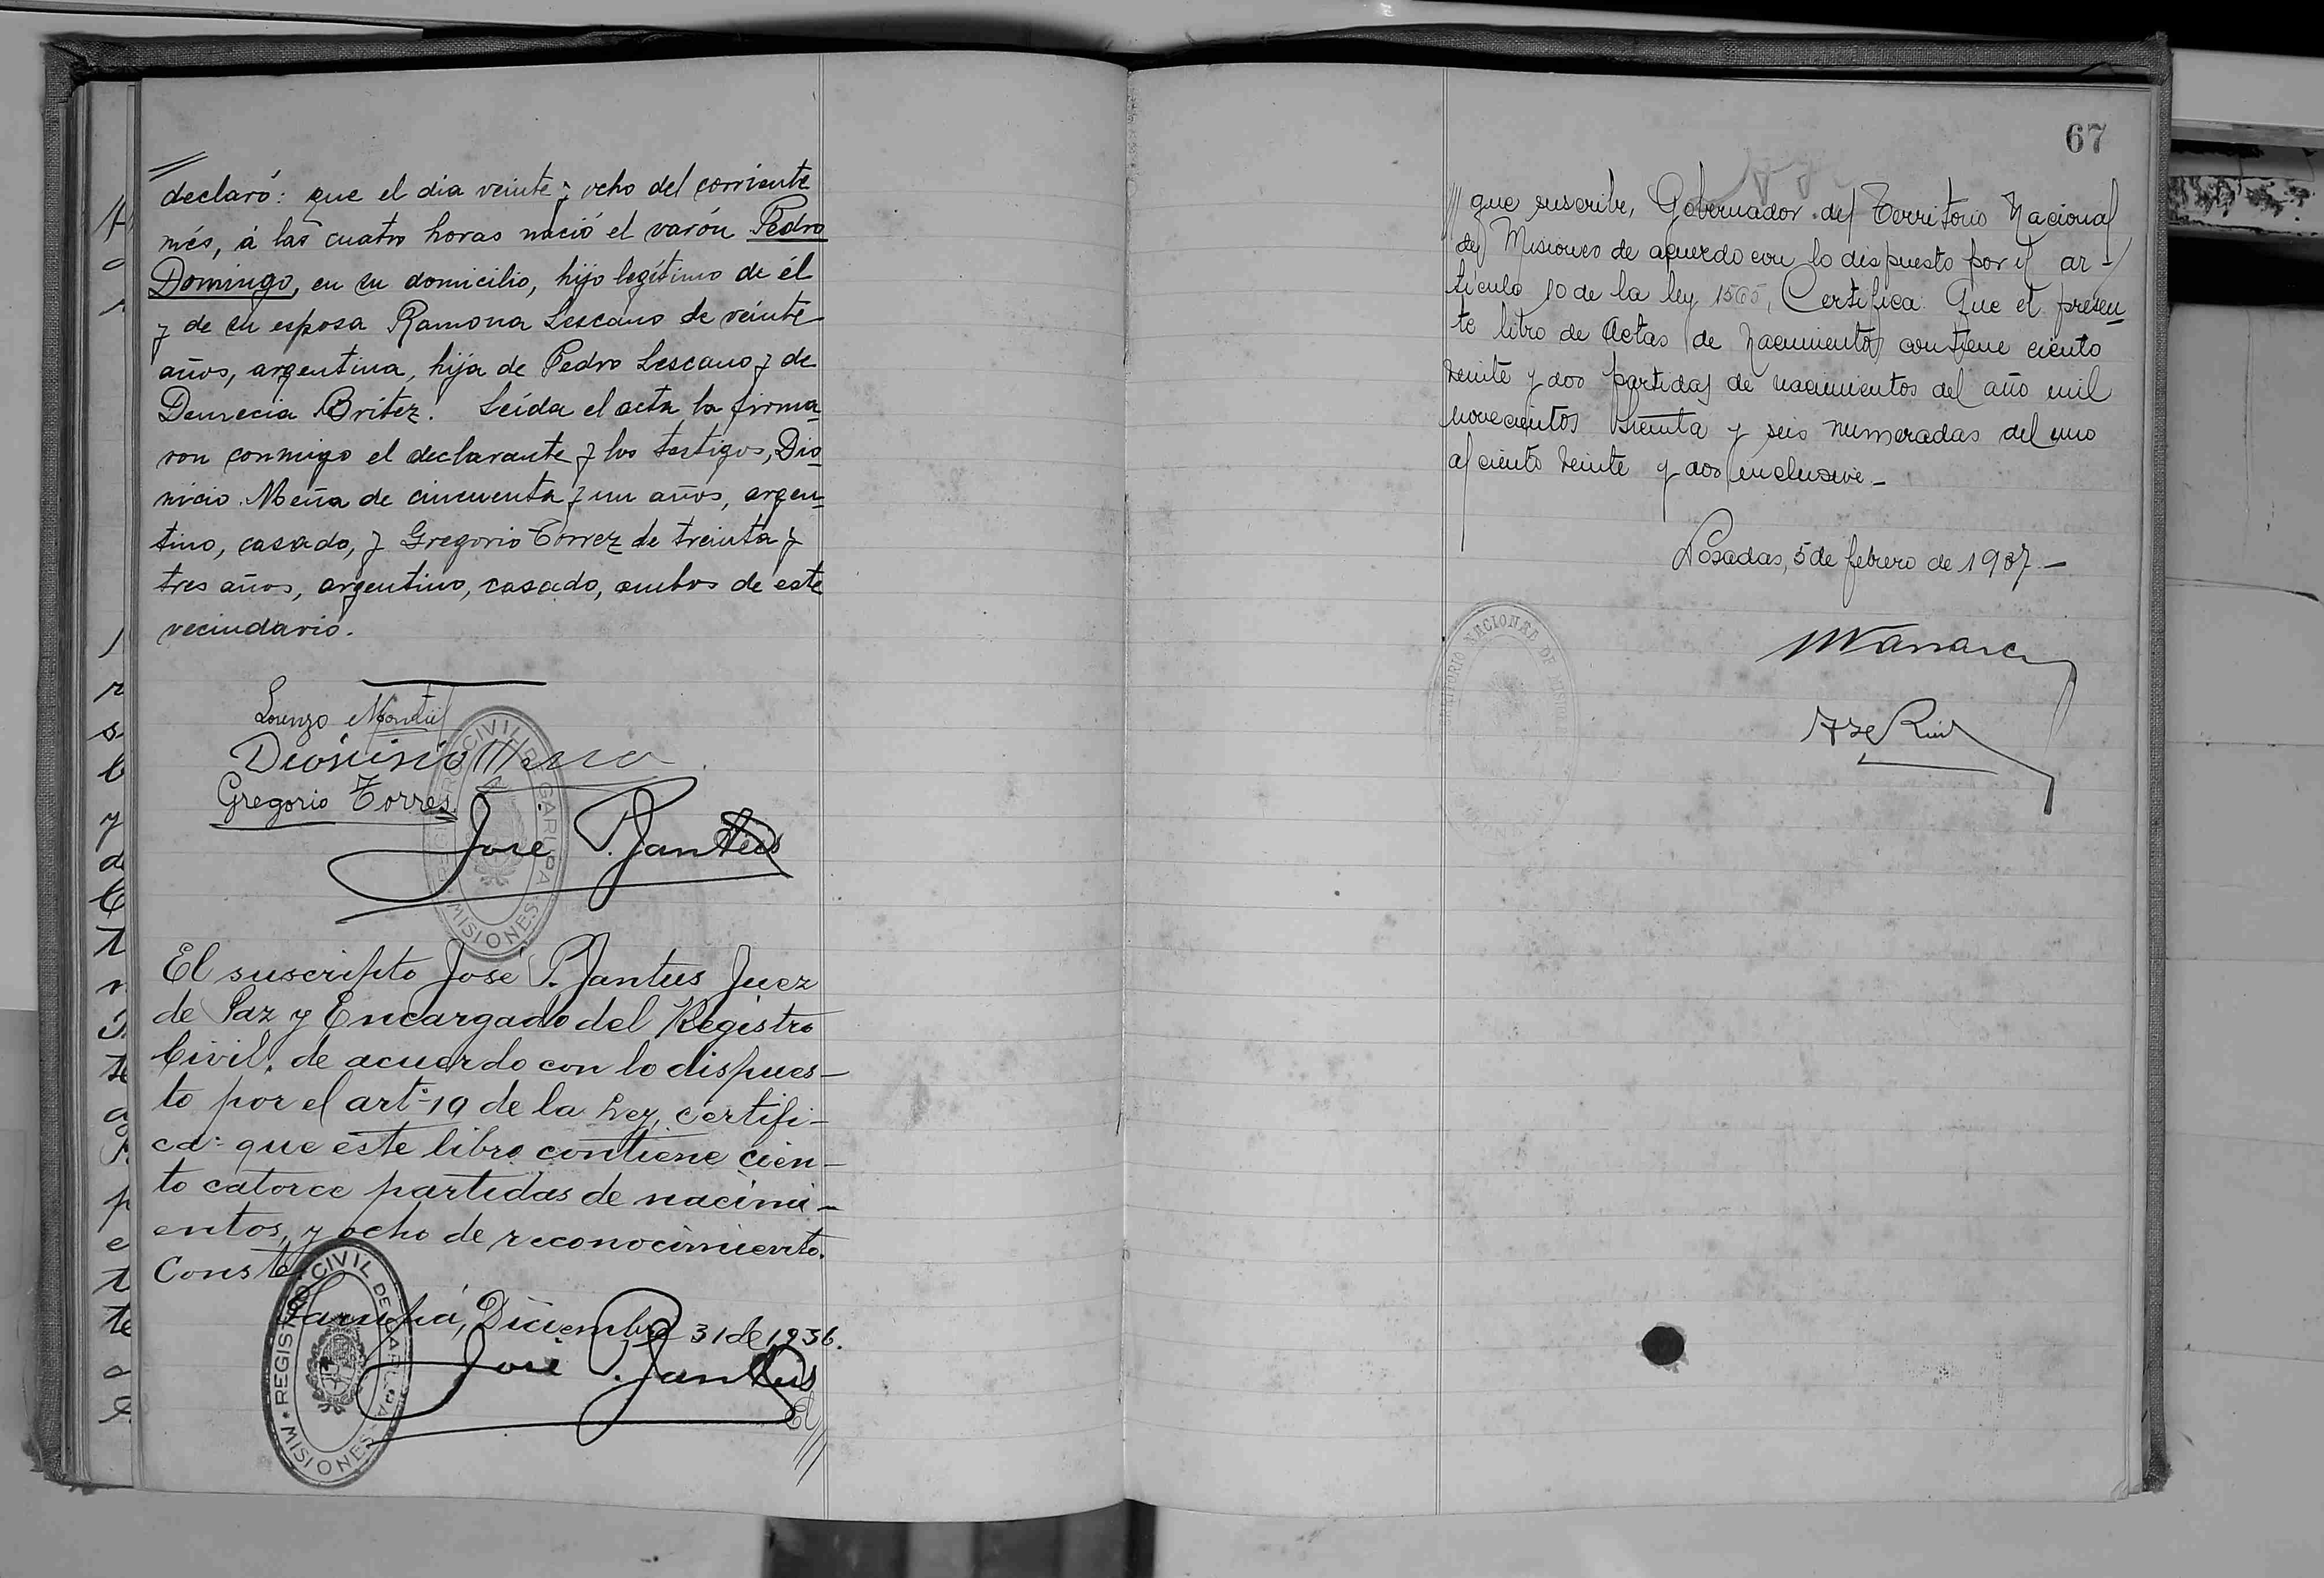 //
declaró: que el dia veinte y ocho del corriente
més, á las cuatro horas nació el varón Pedro
Domingo, en su domicilio, hijo legítimo de él
y de su esposa Ramona Lescano de veinte
años, argentina, hija de Pedro Lescano y de
Brítez. Leída el acta la firma
ron conmigo el declarante y los testigos, Dio
nicio Meña de cincuenta y un años, argen
tino, casado, y Gregorio Torrez de treinta y
tres años, argentino, casado, ambos de este
vecindario.
Lorenzo Montiel
Dionisio
Gregorio Torres
José P. Jantus
REGISTRO CIVIL DE GARUPA
MISIONES
El suscripto José P. Jantus Juez
de Paz y Encargado del Registro
Civil, de acuerdo con lo dispues-
to por el artº 19 de la Ley, certifi-
ca: que este libro contiene cien-
to catorce partidas de nacimi-
entos, y ocho de reconocimiento.
Conste.
Garupá, Diciembre 31 de 1936.
José P. Jantus
REGISTRO CIVIL DE GARUPA
* MISIONES
El
///
67
/// que suscribe, Gobernador del Territorio Nacional
de Misiones de acuerdo con lo dispuesto por el ar-
tículo 10 de la ley 1565, Certifica: Que el presen
te libro de Actas de Nacimientos contiene ciento
veinte y dos partidas de nacimientos del año mil
novecientos treinta y seis numeradas del uno
al ciento veinte y dos inclusive.-
Posadas, 5 de febrero de 1937.-
TERRITORIO NACIONAL DE MISIONES